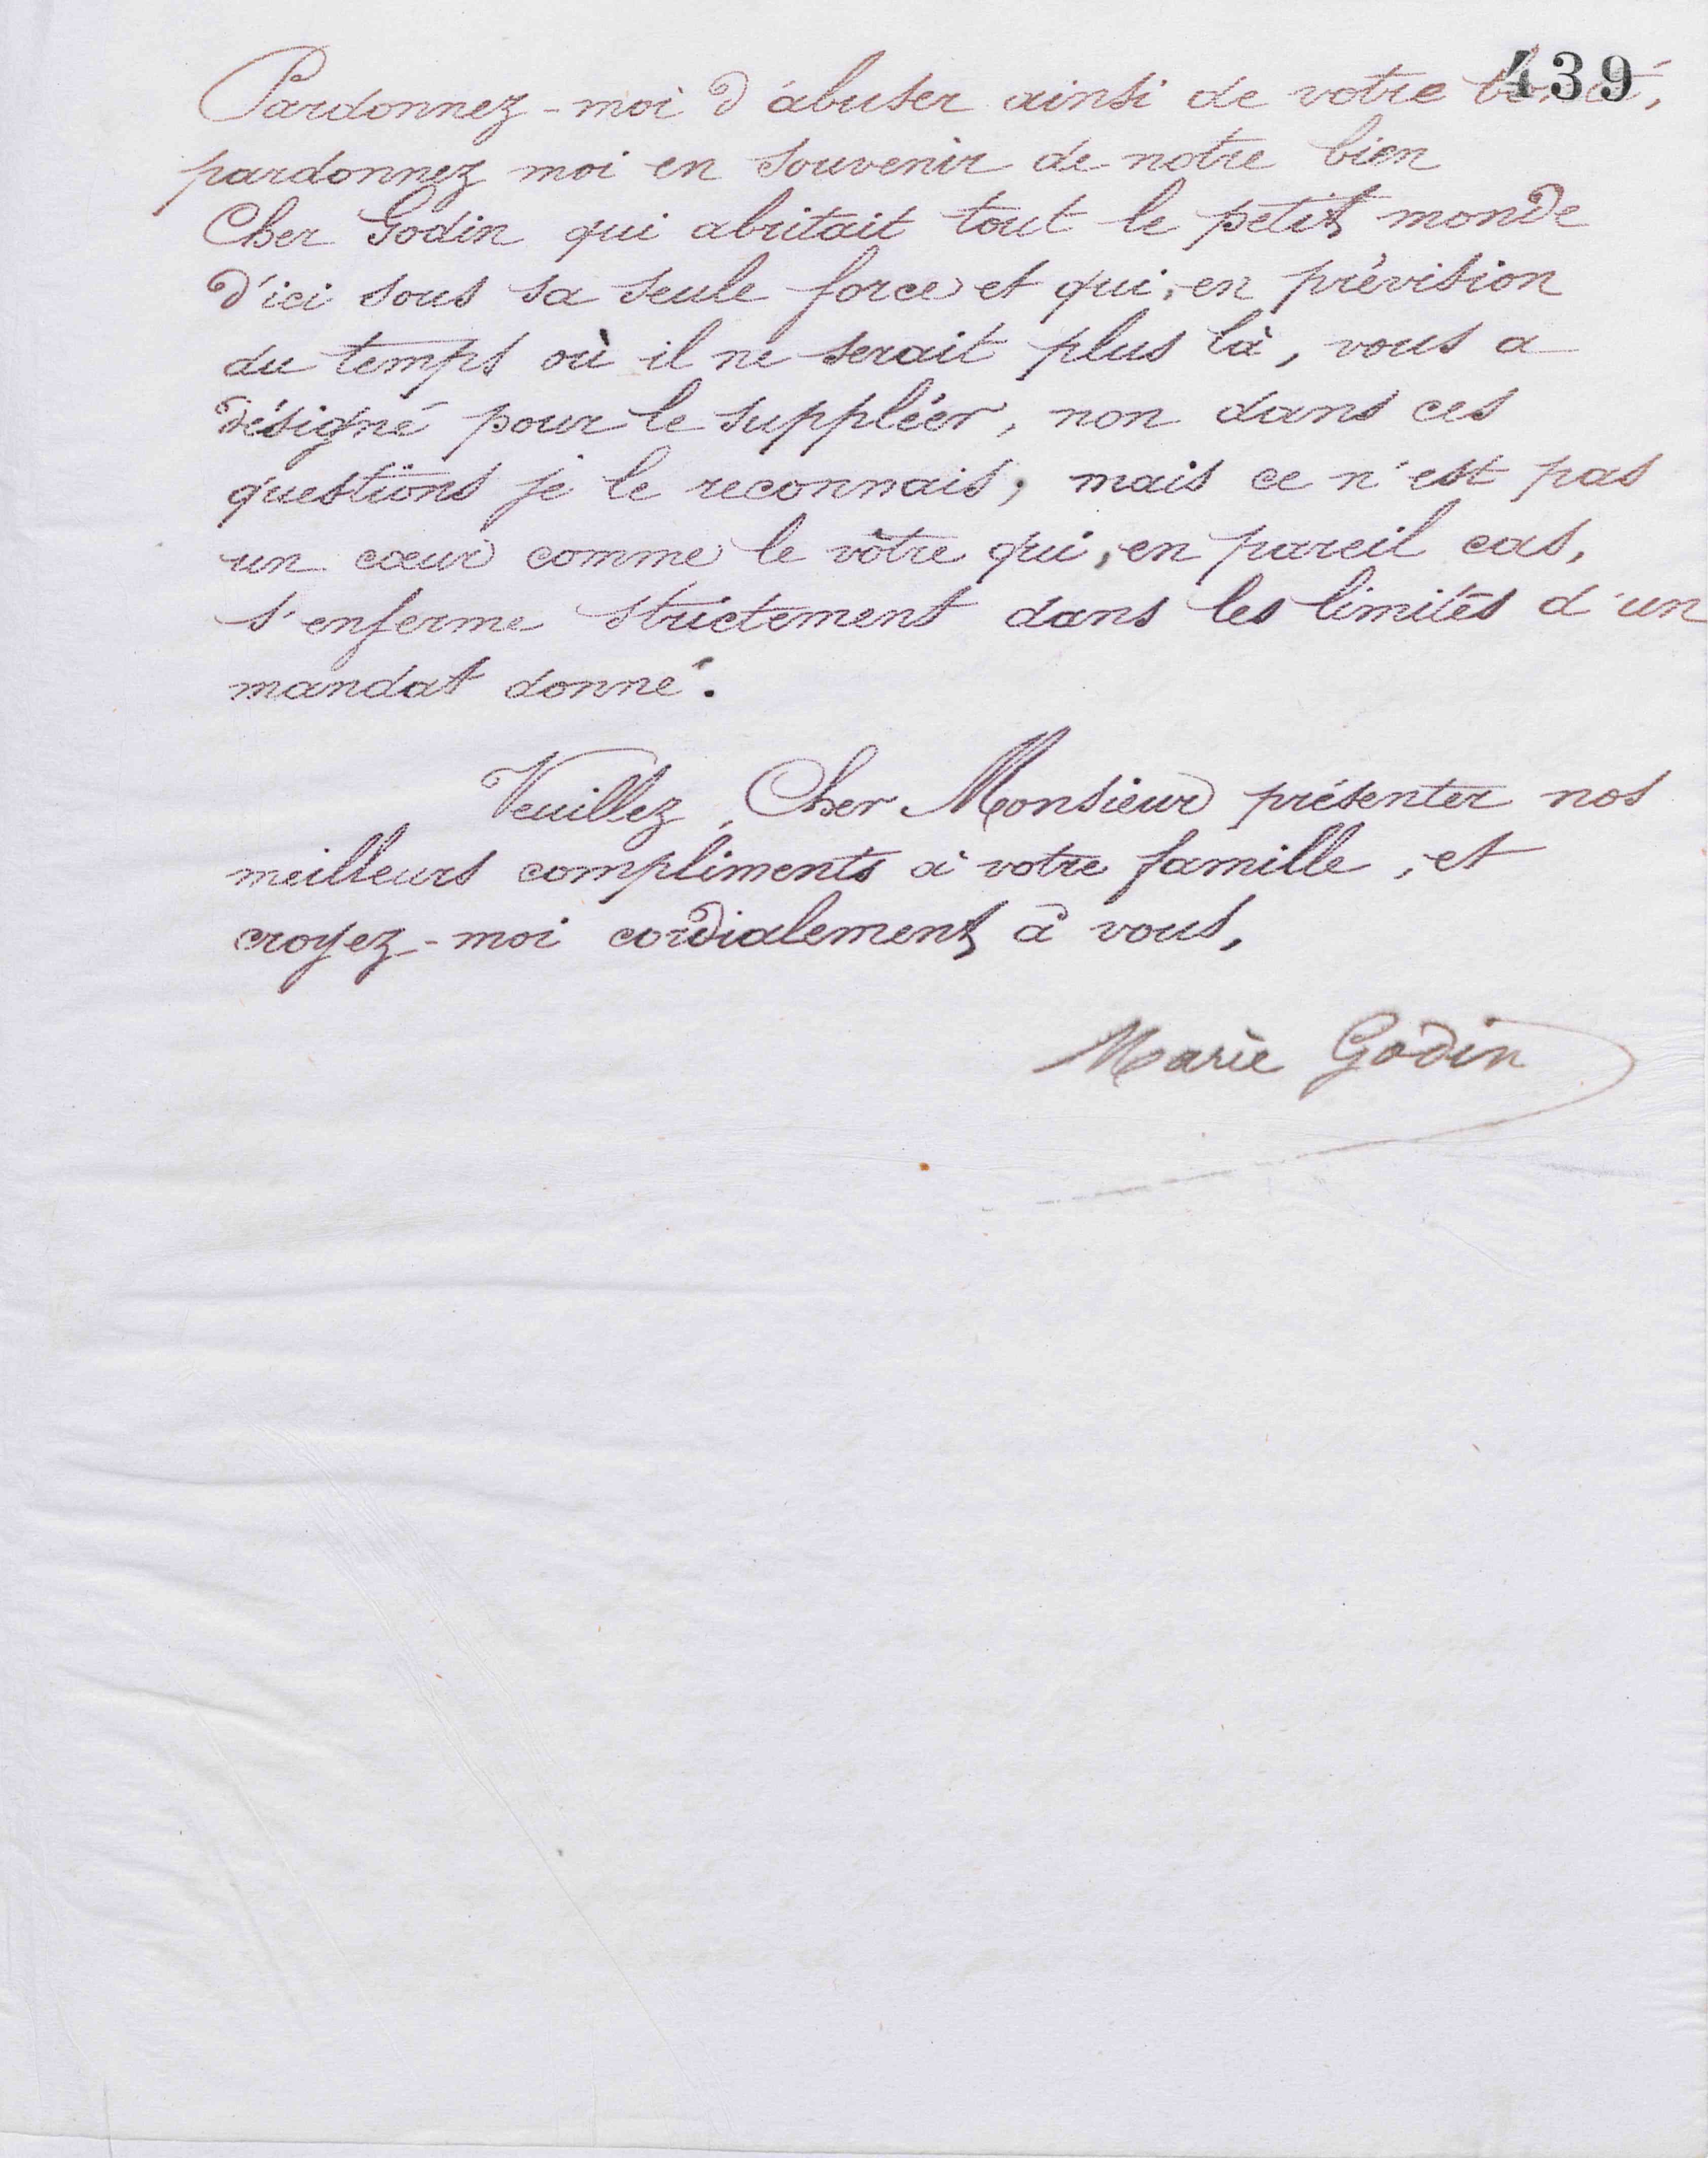 439
Pardonnez-moi d'abuser ainsi de votre bonté,
pardonnez moi en souvenir de notre bien
Cher Godin qui abritait tout le petit monde
d'ici sous sa seule force et qui, en prévision
du temps où il ne serait plus là, vous a
désigné pour le suppléer, non dans ces
questions je le reconnais, mais ce n'est pas
un cœur comme le vôtre qui, en pareil cas,
s'enferme strictement dans les limites d'un
mandat donné.
Veuillez, Cher Monsieur présenter nos
meilleurs compliments à votre famille, et
croyez-moi cordialement à vous,
Marie Godin